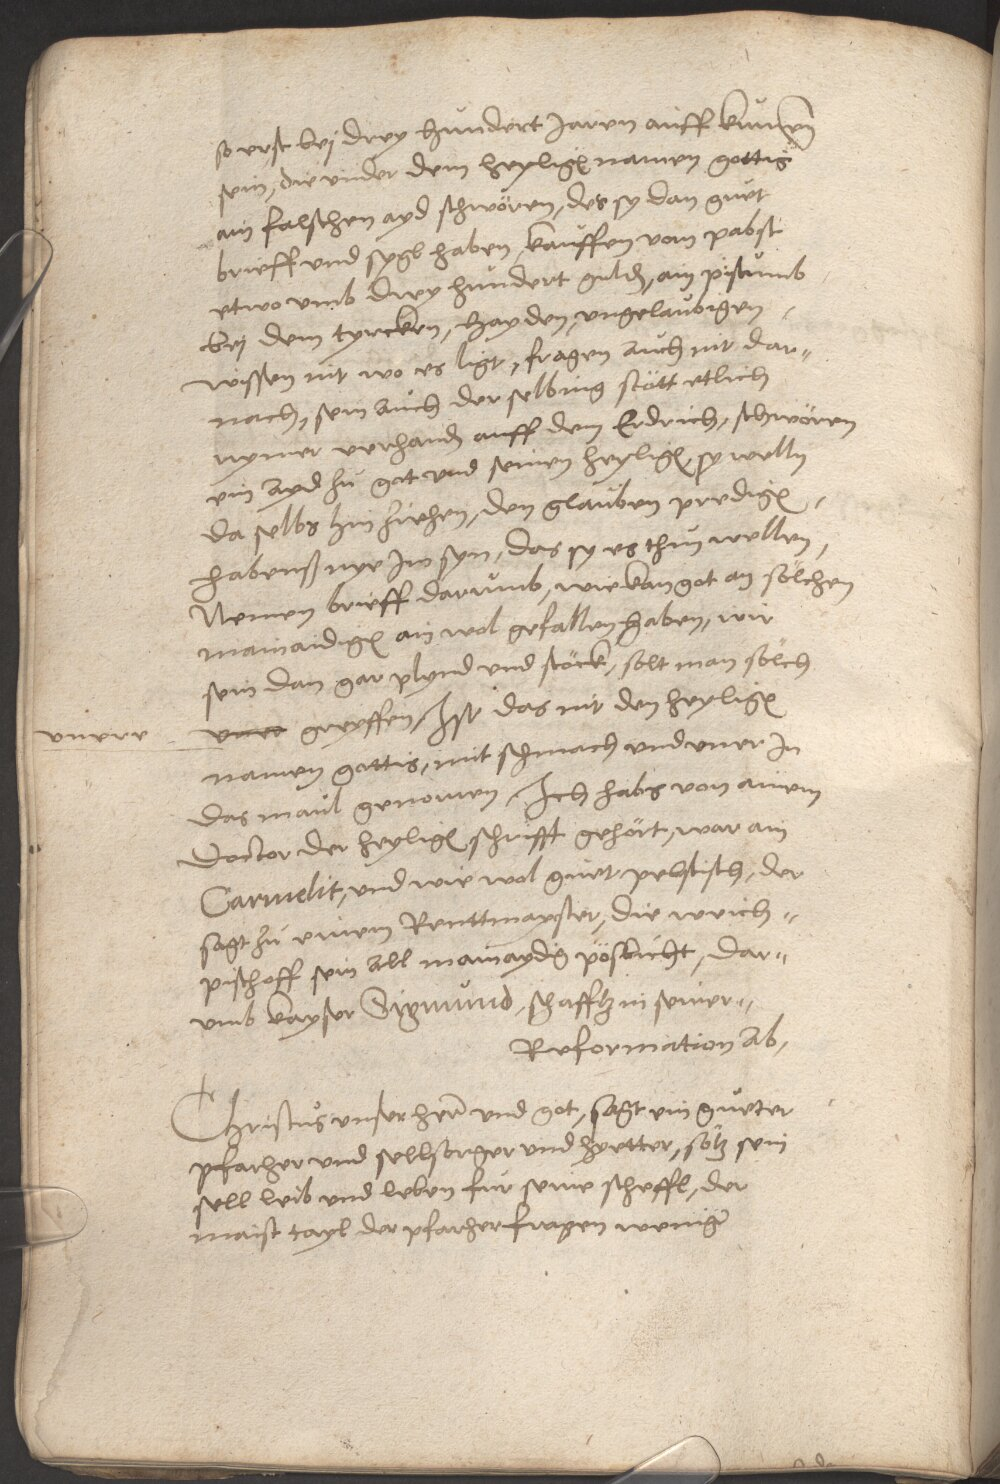 so erst bej drey hundert Jaren auff kumen
sein, die vnder dem heyligen namen gottis
ain falschen ayd schwören, des sy dan guet
brieff vnd sygl haben, kauffen vom pabst
etwo vmb drey hundert guldn, ain pistumb
bej dem tyrcken, hayden, vngelaubigen
wissen nit wo es ligt, fragen auch nit dar„
nach, sein auch derselbing stött etlich
nymer verhanden auff dem Erdrich, schwören
ein Ayd zu got vnd seinen heyligen, sy welln
da selbs hin ziehen, den glauben predigen
habenß nye Im syn, das sy es thun wellen,
Nemen brieff darumb, wie kan got an sölchen
mainaidigen ain wol gefallen haben, wir
sein dan gar plynd vnd stöck, solt man sölch
vnere greyffen, Ist das nit den heyligen
vnere
namen gottis, mit schmach vnd vner In
das maul genomen, Ich habs von ainem
Doctor der heyligen schrifft gehört, war ain
Carmelit, vnd wie wol guet pebstisch, der
sagt zu einem Renttmayster, die weich„
pischoff sein All mainaydig pößbicht, dar„
vmb kayser Sigmund, schafftz in seiner„
Reformation Ab,
Christus vnser herr vnd got, sagt ein gueter
pfarher vnd sellsorger vnd hyetter, sötz sein
sell leib vnd leben fur seine scheffl, der
maist tayl der pfarher fragen wenig